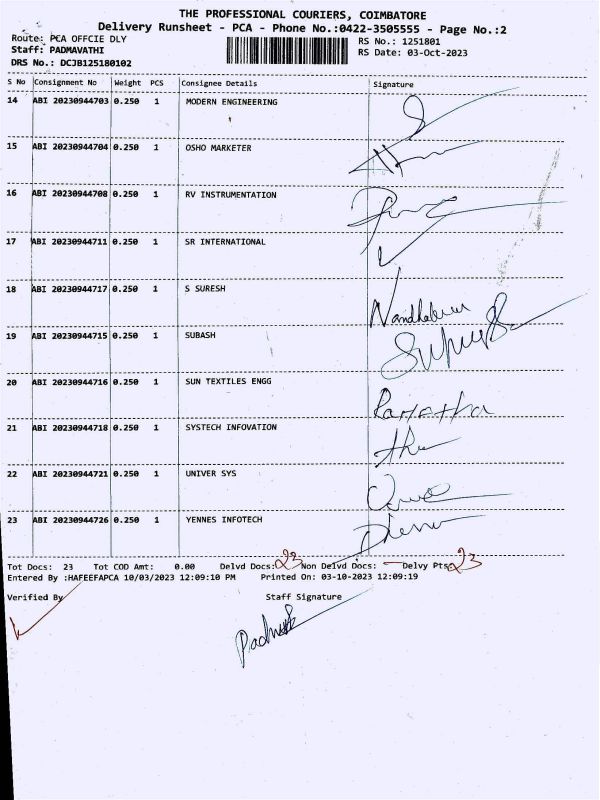 THE PROFESSIONAL COURIERS, COIMBATORE
Delivery Runsheet - PCA - Phone No.:0422-3505555 - Page No.:2
Route: PCA OFFCIE DLY RS No.: 1251801
Staff: PADMAVATHI RS Date: 03-Oct-2023
DRS No.: DCJB125180102
S No Consignment No Weight PCS Consignee Details Signature
14 ABI 20230944703 0.250 1 MODERN ENGINEERING
15 ABI 20230944704 0.250 1 OSHO MARKETER
16 ABI 20230944708 0.250 1 RV INSTRUMENTATION
17 ABI 20230944711 0.250 1 SR INTERNATIONAL
18 ABI 20230944717 0.250 1 S SURESH
19 ABI 20230944715 0.250 1 SUBASH
20 ABI 20230944716 0.250 1 SUN TEXTILES ENGG
21 ABI 20230944718 0.250 1 SYSTECH INFOVATION
22 ABI 20230944721 0.250 1 UNIVER SYS
23 ABI 20230944726 0.250 1 YENNES INFOTECH
Tot Docs: 23 Tot COD Amt: 0.00 Delvd Docs: 23 Non Delvd Docs: - Delvy Pts: 23
Entered By :HAFEEFAPCA 10/03/2023 12:09:10 PM Printed On: 03-10-2023 12:09:19
Verified By Staff Signature